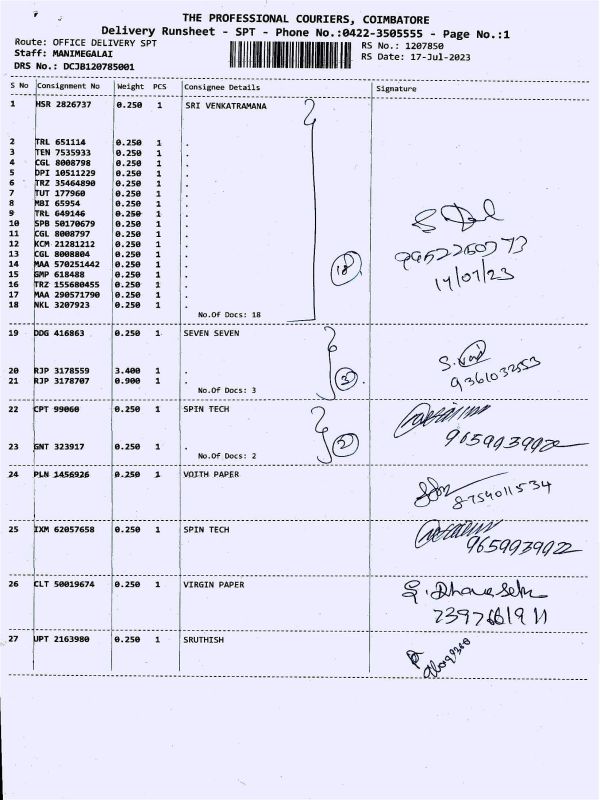 THE PROFESSIONAL COURIERS, COIMBATORE
Delivery Runsheet - SPT - Phone No.:0422-3505555 - Page No.:1
Route: OFFICE DELIVERY SPT
RS No.: 1207850
Staff: MANIMEGALAI
RS Date: 17-Jul-2023
DRS No.: DCJB120785001
S No Consignment No Weight PCS Consignee Details Signature
1 HSR 2826737 0.250 1 SRI VENKATRAMANA
2 TRL 651114 0.250 1 .
3 TEN 7535933 0.250 1 .
4 CGL 8008798 0.250 1 .
5 DPI 10511229 0.250 1 .
6 TRZ 35464890 0.250 1 .
7 TUT 177960 0.250 1 .
8 MBI 65954 0.250 1 .
9 TRL 649146 0.250 1 .
10 SPB 50170679 0.250 1 .
11 CGL 8008797 0.250 1 .
12 KCM 21281212 0.250 1 .
13 CGL 8008804 0.250 1 .
14 MAA 570251442 0.250 1 .
15 GMP 618488 0.250 1 .
16 TRZ 155680455 0.250 1 .
17 MAA 290571790 0.250 1 .
18 NKL 3207923 0.250 1 .
18
17/07/23
No.Of Docs: 18
19 DDG 416863 0.250 1 SEVEN SEVEN
20 RJP 3178559 3.400 1 .
21 RJP 3178707 0.900 1 .
3
No.Of Docs: 3
22 CPT 99060 0.250 1 SPIN TECH
23 GNT 323917 0.250 1 .
2
9659939922
No.Of Docs: 2
24 PLN 1456926 0.250 1 VOITH PAPER
8754011534
25 IXM 62057658 0.250 1 SPIN TECH
9659939922
26 CLT 50019674 0.250 1 VIRGIN PAPER
27 UPT 2163980 0.250 1 SRUTHISH